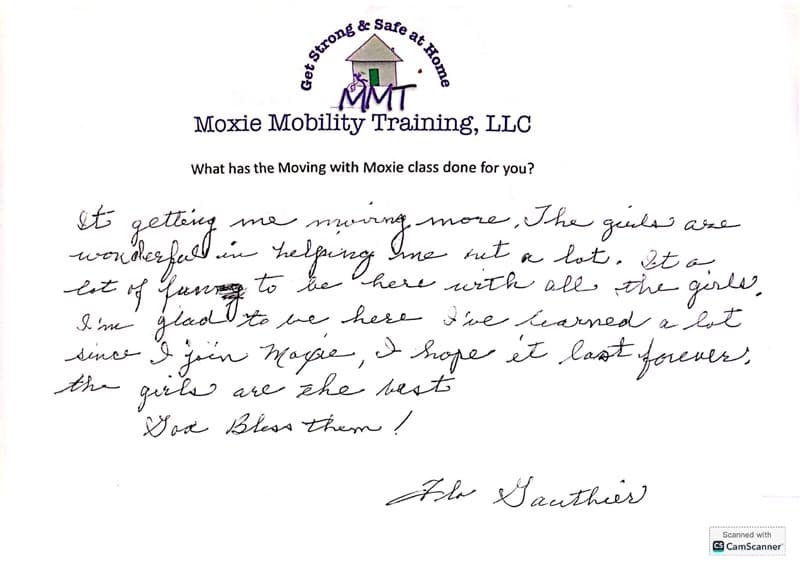 Get Strong & Safe at Home
MMT
Moxie Mobility Training, LLC
What has the Moving with Moxie class done for you?
It getting me moving more. The girls are
wonderful in helping me out a lot. It a
lot of fun to be here with all the girls.
I'm glad to be here I've learned a lot
since I join Moxie, I hope it last forever.
the girls are the best
God Bless them!
Flo Gauthier
Scanned with
CS CamScanner